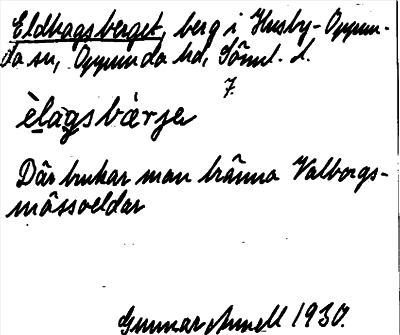 Eldhagsberget, berg i Husby-Oppun-
da sn, Oppunda hd, Söml. l.
7.
èlagsbàrje
Där brukar man bränna Valborgs-
mässoeldar
Gunnar Arnell 1930.